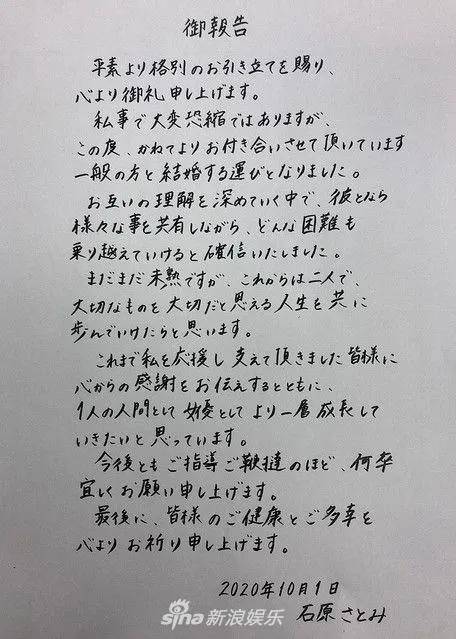 御報告
平素より格別のお引き立てを賜り、
心より御礼申し上げます。
私事で大変恐縮ではありますが、
この度、かねてよりお付き合いさせて頂いています
一般の方と結婚する運びとなりました。
お互いの理解を深めていく中で、彼となら
様々な事を共有しながら、どんな困難も
乗り越えていけると確信いたしました。
まだまだ未熟ですが、これからは二人で、
大切なものを大切だと思える人生を共に
歩んでいけたらと思います。
これまで私を応援し支えて頂きました皆様に
心からの感謝をお伝えするとともに、
1人の人間として女優としてより一層成長して
いきたいと思っています。
今後ともご指導ご鞭撻のほど、何卒
宜しくお願い申し上げます。
最後に、皆様のご健康とご多幸を
心よりお祈り申し上げます。
2020年10月1日
石原さとみ
sina新浪娱乐